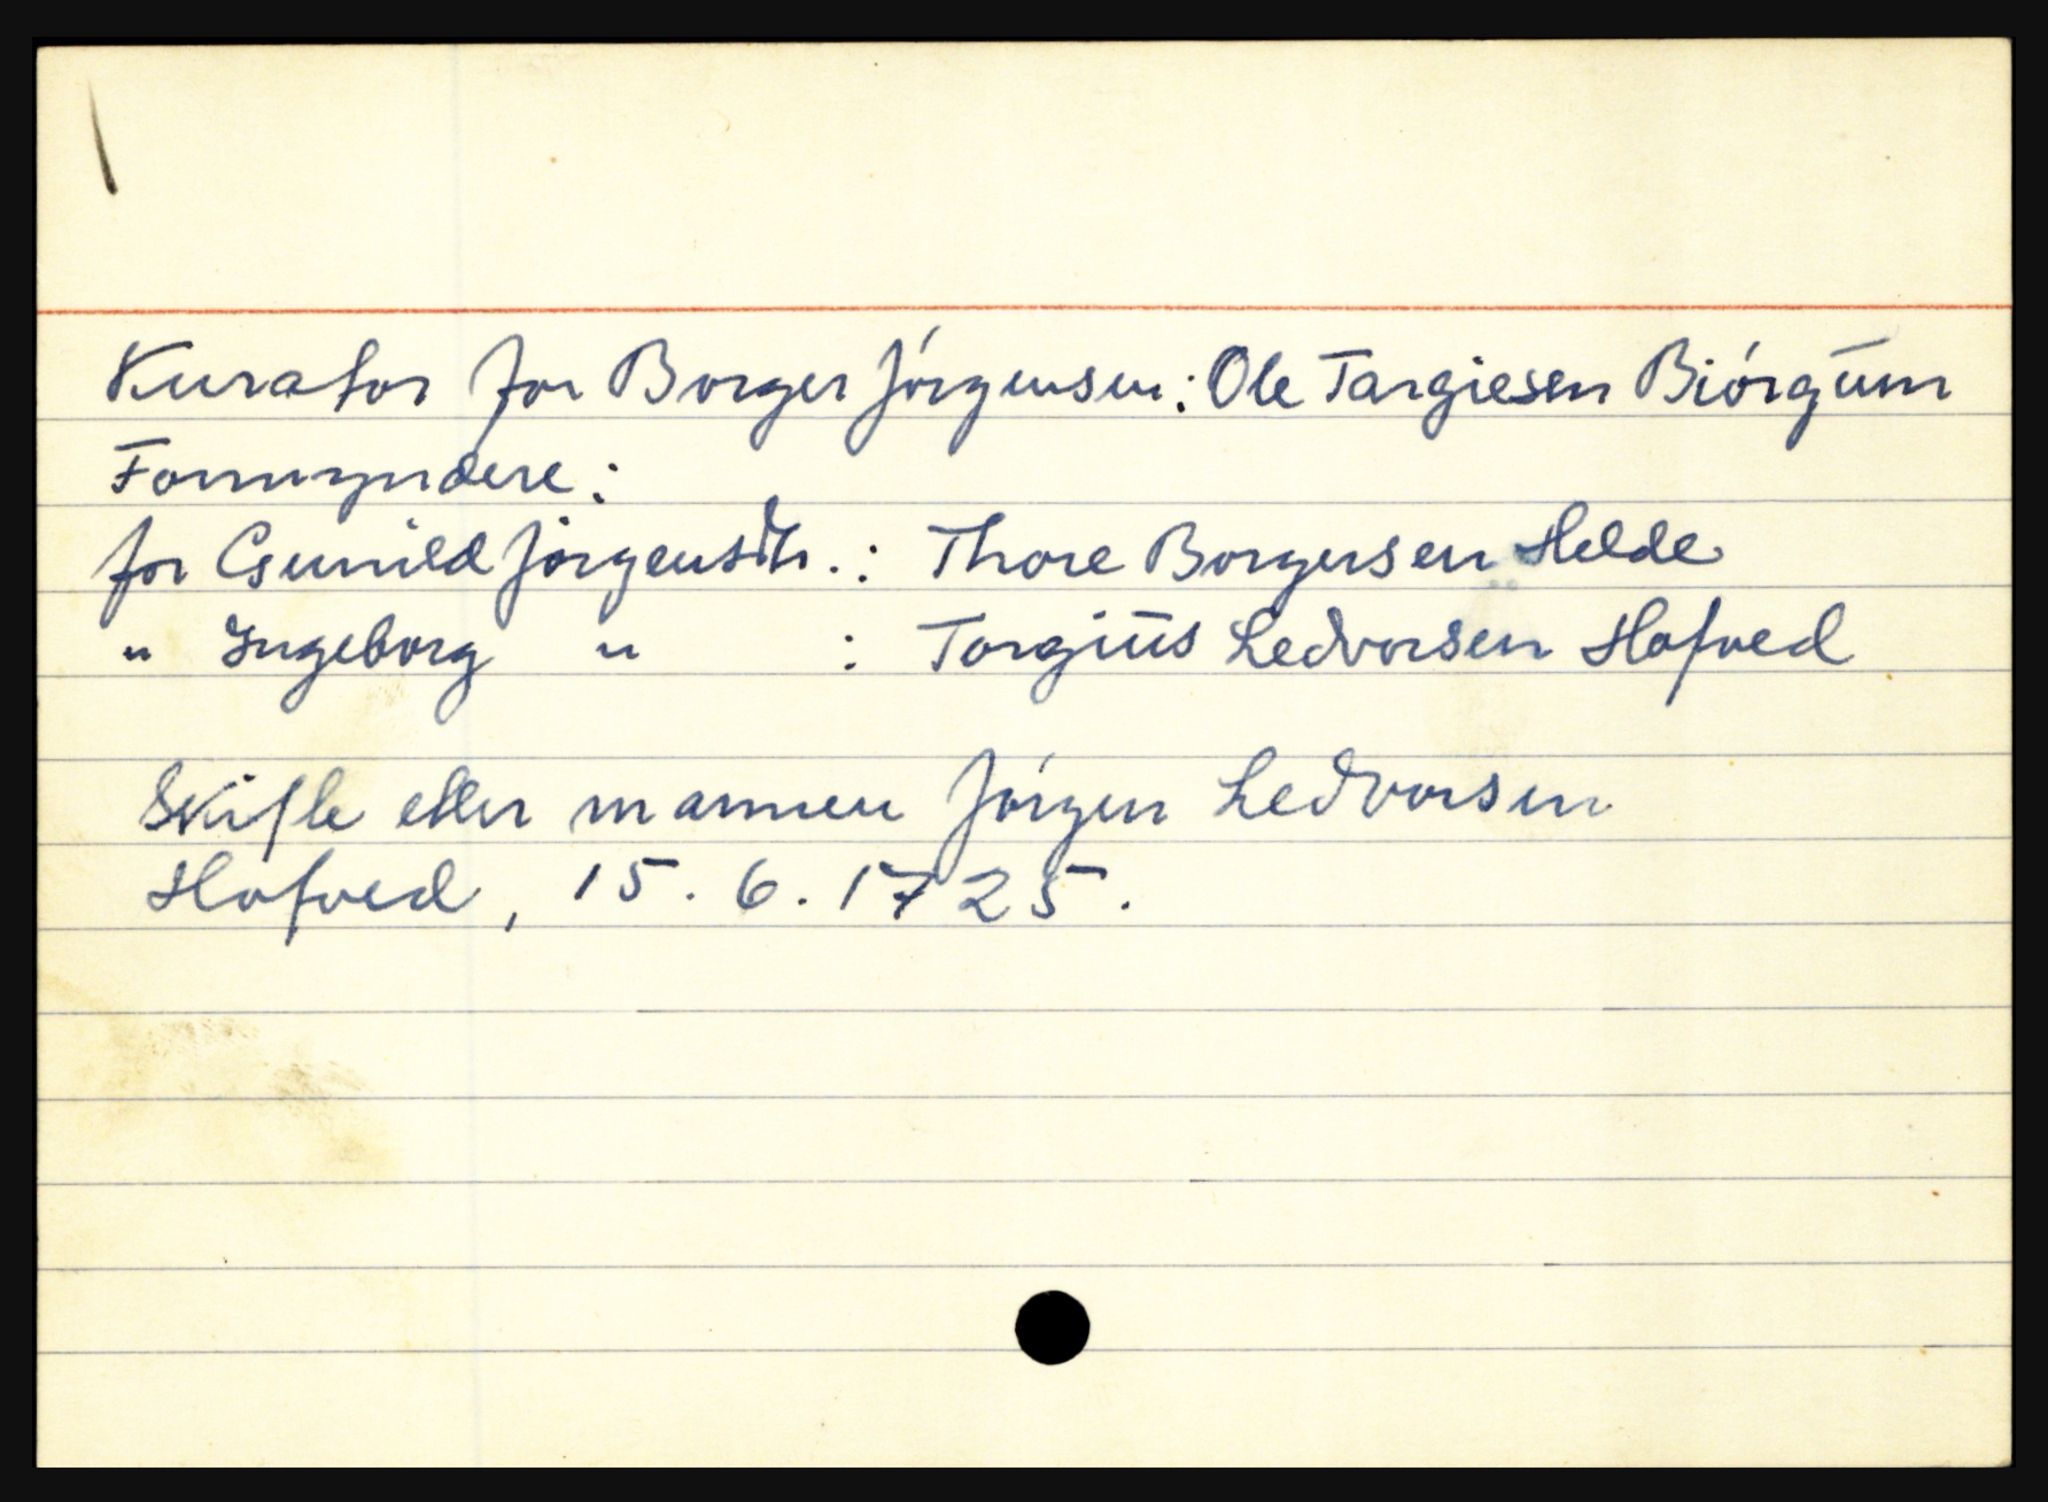 Kurator for Borger Jórgensen: Ole Targiesen Biórgūm
Formyndere:
for Gunild Jórgensdtr.: Thore Borgersen Helde
" Ingeborg " : Torgiūs Ledvorsen Hofved
Skifte etter mannen Jórgen Ledvorsen
Hofved, 15.6.1725.